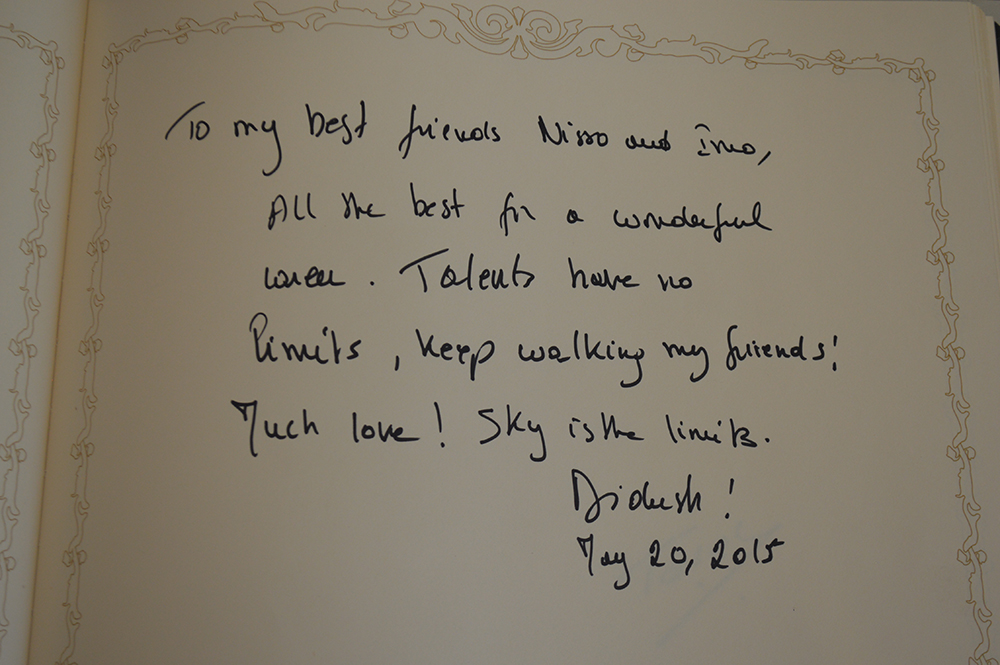 To my best friends Nisso and Imo,
All the best for a wonderful
career. Talents have no
limits, keep walking my friends!
Much love! Sky is the limits.
May 20, 2015